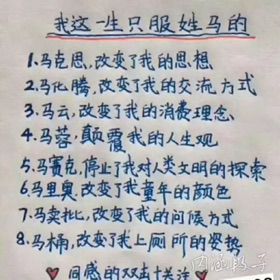 我这一生只服姓马的
1.马克思,改变了我的思想
2.马化腾,改变了我的交流方式
3.马云,改变了我的消费理念
4.马蓉,颠覆我的人生观
5.马赛克,停止了我对人类文明的探索
6.马里奥,改变了我童年的颜色
7.马卖批,改变了我的问候方式
8.马桶,改变了我上厕所的姿势
同感的双击关注
内涵段子